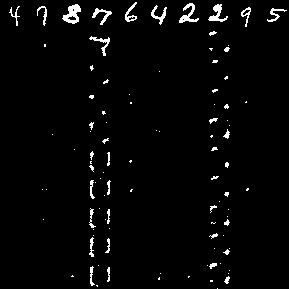 4 7 8 7 6 4 2 2 9 5